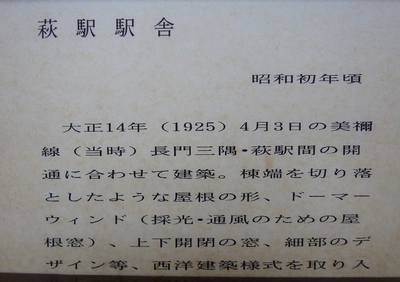 萩駅駅舎
昭和初年頃
大正14年（1925）4月3日の美禰
線（当時）長門三隅・萩駅間の開
通に合わせて建築。棟端を切り落
としたような屋根の形、ドーマー
ウィンド（採光・通風のための屋
根窓）、上下開閉の窓、細部のデ
ザイン等、西洋建築様式を取り入